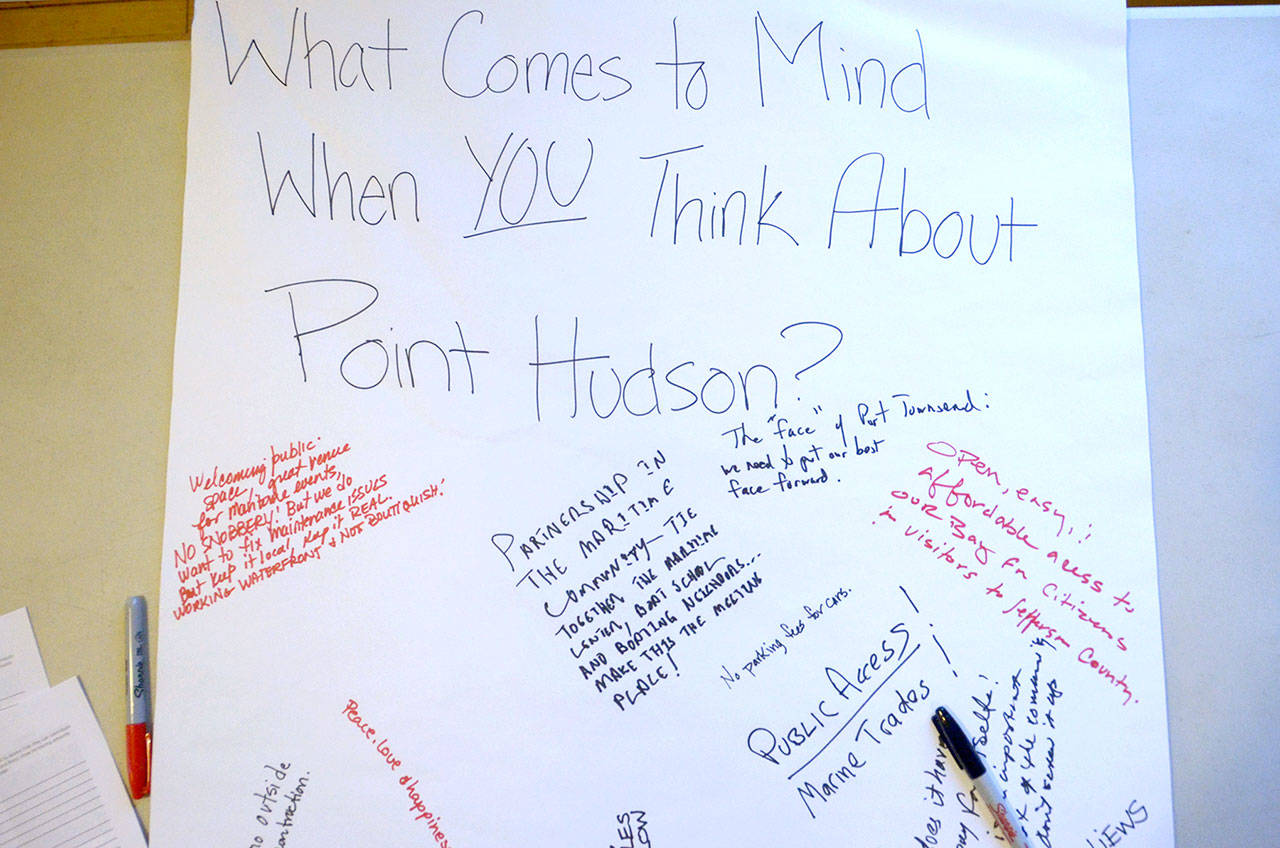 What Comes to Mind
When YOU Think About
Point Hudson?
Welcoming public
space, great venue
for maritime events,
NO SNOBBERY! But we do
want to fix maintenance ISSUES
But keep it local, keep it REAL.
WORKING WATERFRONT & NOT BOUTIQUISH!
PARTNERSHIP IN
THE MARITIME
COMMUNITY — TIE
TOGETHER THE MARITIME
CENTER, BOAT SCHOOL
AND BOATING NEIGHBORS...
MAKE THIS THE MEETING
PLACE!
The "face" of Port Townsend:
we need to put our best
face forward.
Open, easy,
affordable access to
our Bay for Citizens
visitors to Jefferson County.
No parking fees for cars.
PUBLIC ACCESS!
Marine Trades
Peace, love & happiness
no outside
does it have
don't screw it up
VIEWS
Sharpie